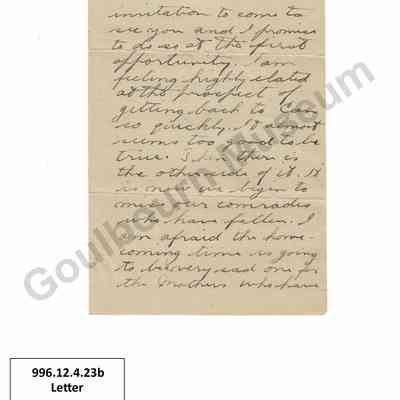 invitation to come to
see you and I promise
to do so at the first
opportunity. I am
feeling highly elated
at the prospect of
getting back to Can
so quickly. It almost
seems too good to be
true. Then there is
the other side of it. It
is now we begin to
miss our comrades
who have fallen. I
am afraid the home-
coming time is going
to be very sad one for
the Mothers who have
Goulbourn Museum
996.12.4.23b
Letter